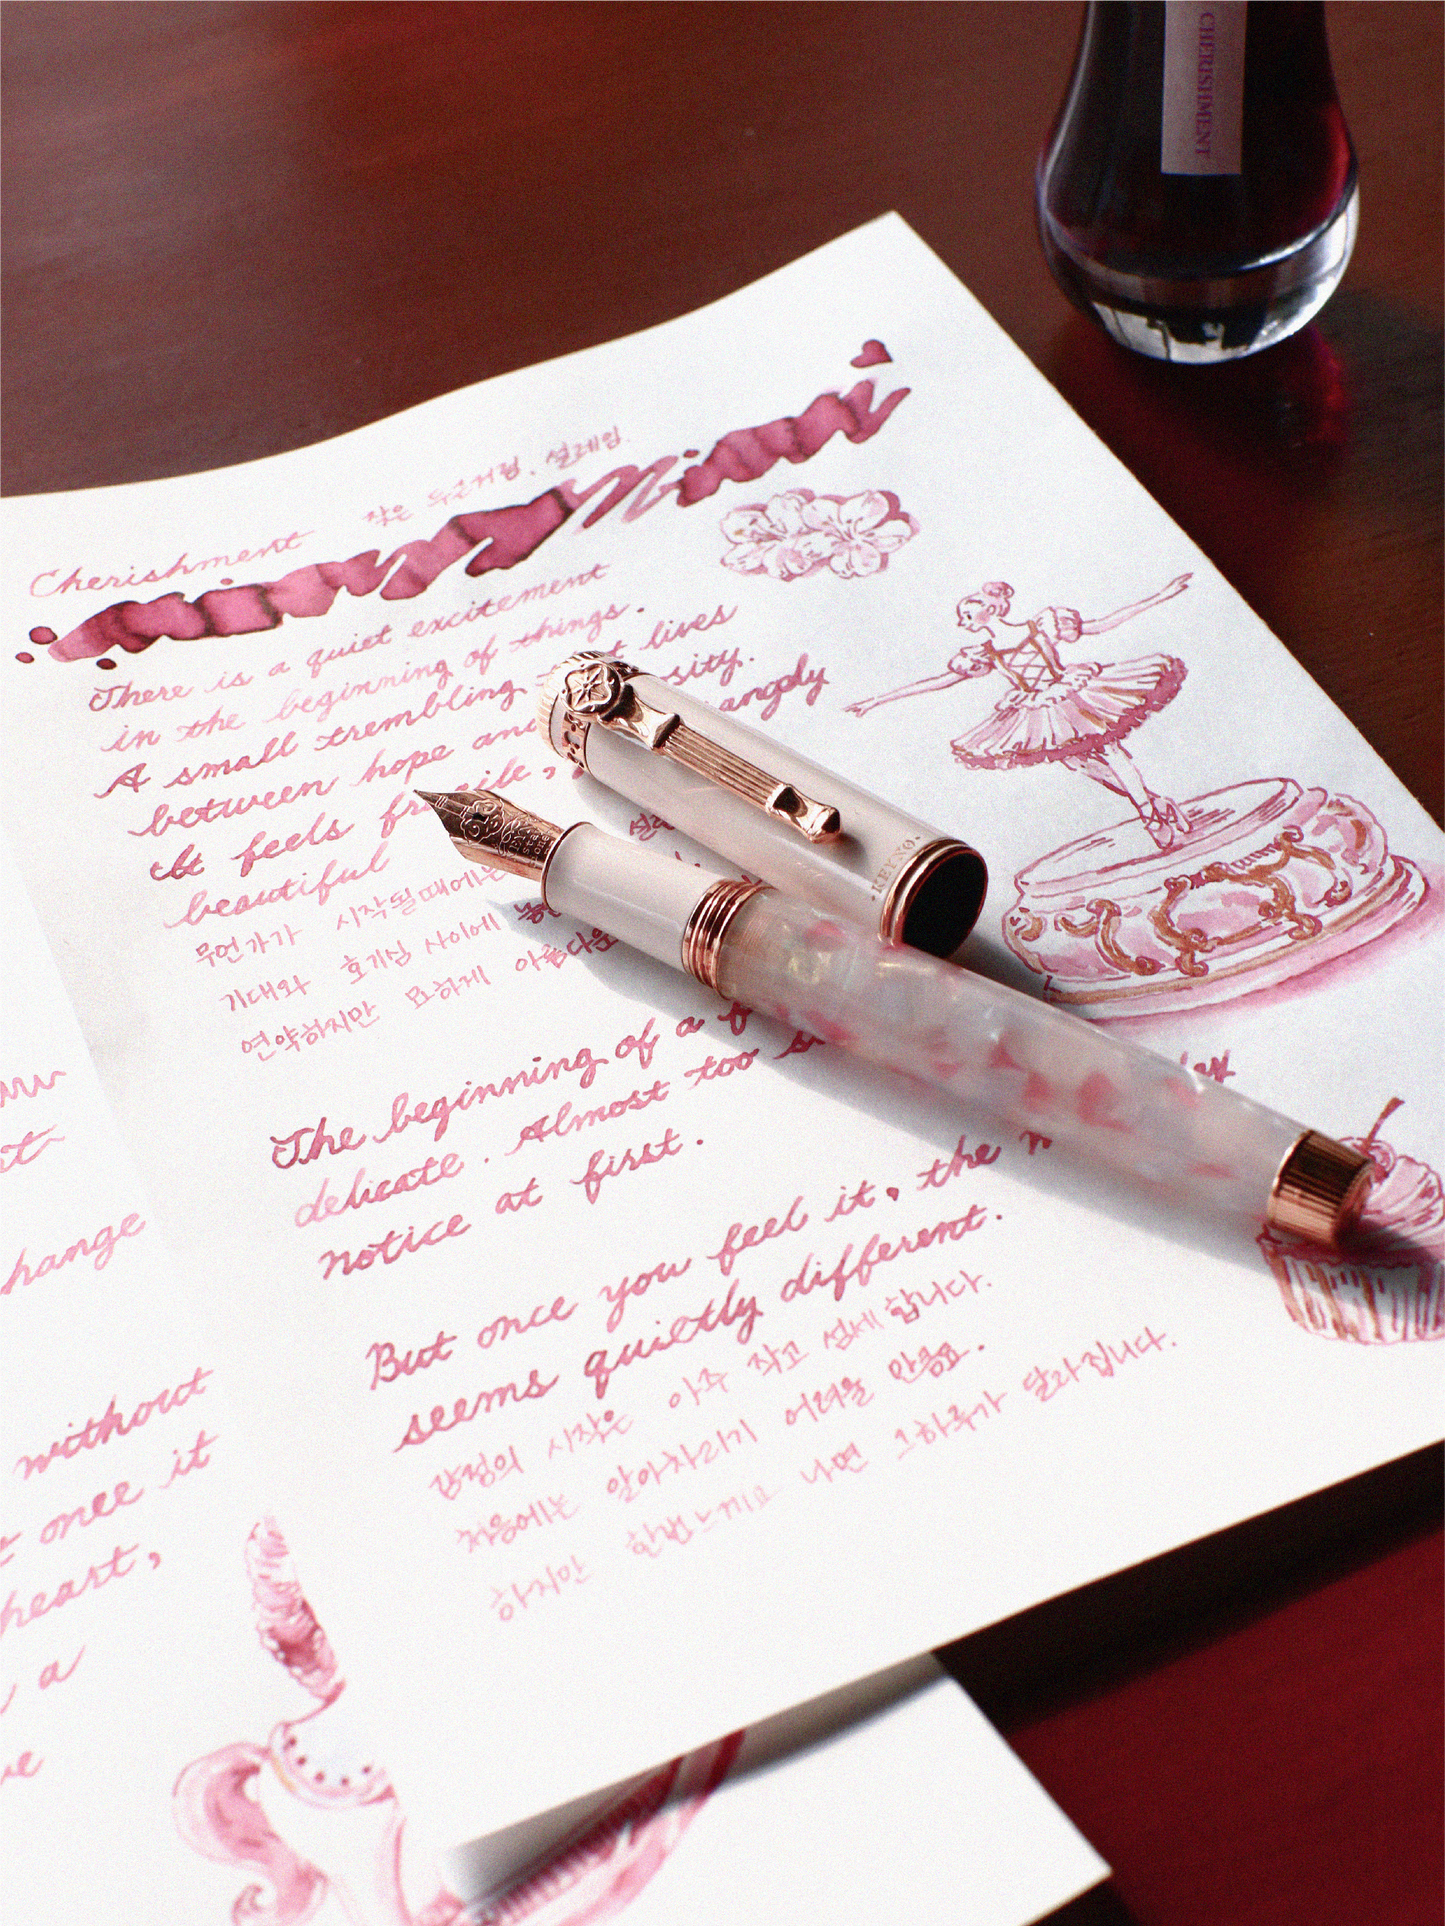 CHERISHMENT
Cherishment 작은 두근거림, 설레임.
There is a quiet excitement
in the beginning of things.
A small trembling lives
between hope and
It feels fragile, angely
beautiful
무언가가 시작될때에는
기대와 호기심 사이에
연약하지만 묘하게 아름다운
The beginning of a
delicate. Almost too
notice at first.
But once you feel it, the
seems quietly different.
감정의 시작은 아주 작고 섬세합니다.
처음에는 알아차리기 어려울 만큼요.
하지만 한번 느끼고 나면 그하루가 달라집니다.
KEYNO
hange
without
once it
heart,
a